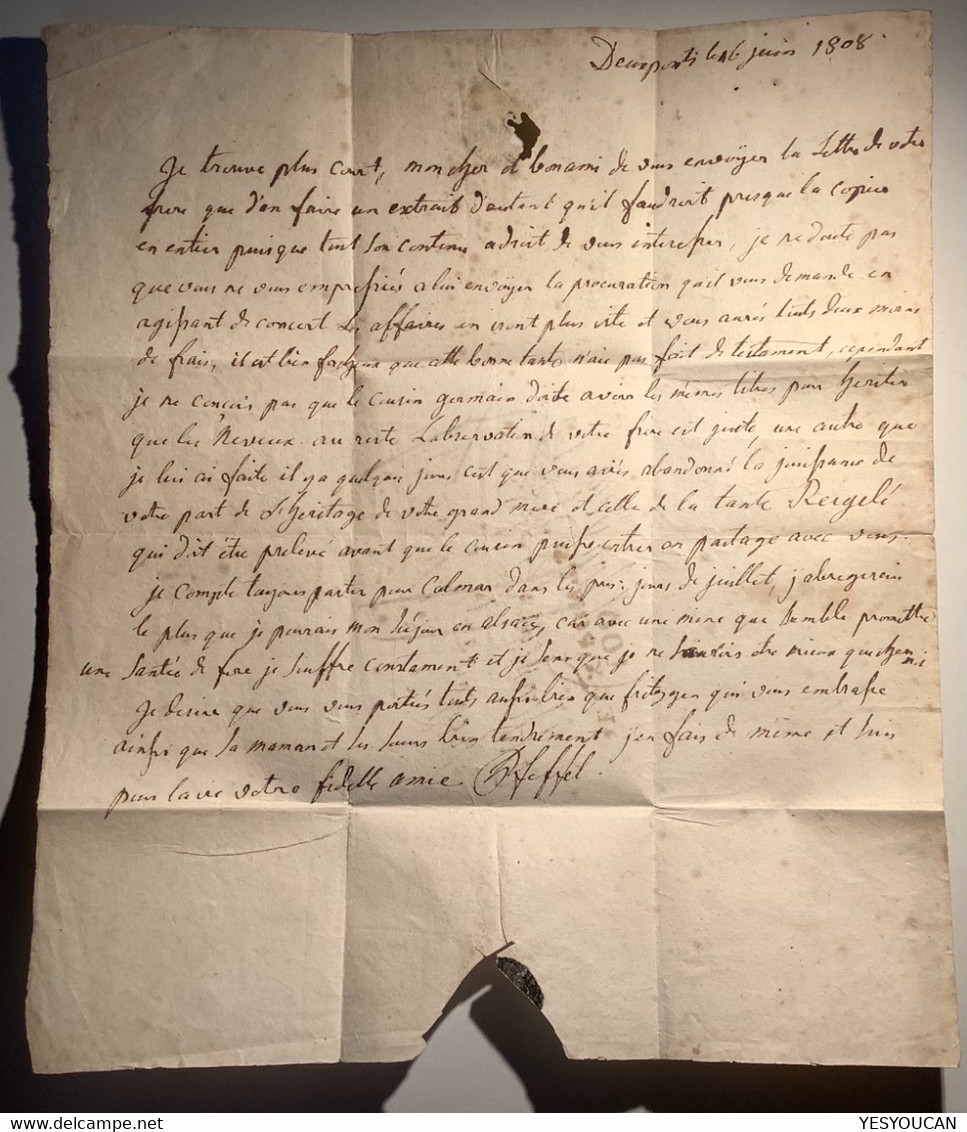 Deuxponts le 16 juin 1808
Je trouve plus court, mon cher et bon ami de vous envoÿer la Lettre de votre
frere que d'en faire un extrait d'autant qu'il faudroit presque la copier
en entier puisque tout son contenu a droit de vous interesser, je ne doute pas
que vous ne vous empressiés a lui envoÿer la procuration qu'il vous demande en
agissant de concert les affaires en iront plus vite et vous aurés touts deux moins
de frais, il est bien facheux que cette bonne tante n'aie pas fait de testament, cependant
je ne conçois pas que le cousin germain doite avoir les mêmes titres pour heriter
que les Neveux. au reste L'observation de votre frere est juste, une autre que
je lui ai faite il y a quelque jours c'est que vous aviés abandonné la jouissance de
votre part de L'heritage de votre grand mere et celle de la tante Reigelé
qui doit être prelevé avant que le cousin puisse entrer en partage avec vous.
je compte toujours partir pour Colmar dans les pres: jours de juillet, j'abregerais
le plus que je pourrais mon sejour en alsace, car avec une mine que semble promettre
une santée de fere je souffre constament et je sens que je ne saurois etre mieux que chez moi
Je desire que vous vous portiés touts aussi bien que fritzgen qui vous embrasse
ainsi que sa maman et les sœurs bien tendrement j'en fais de même et suis
pour la vie votre fidelle amie Pfeffel.
YESYOUCAN